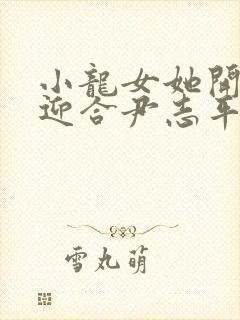 小龍女她開
迎合尹志平
雪丸萌